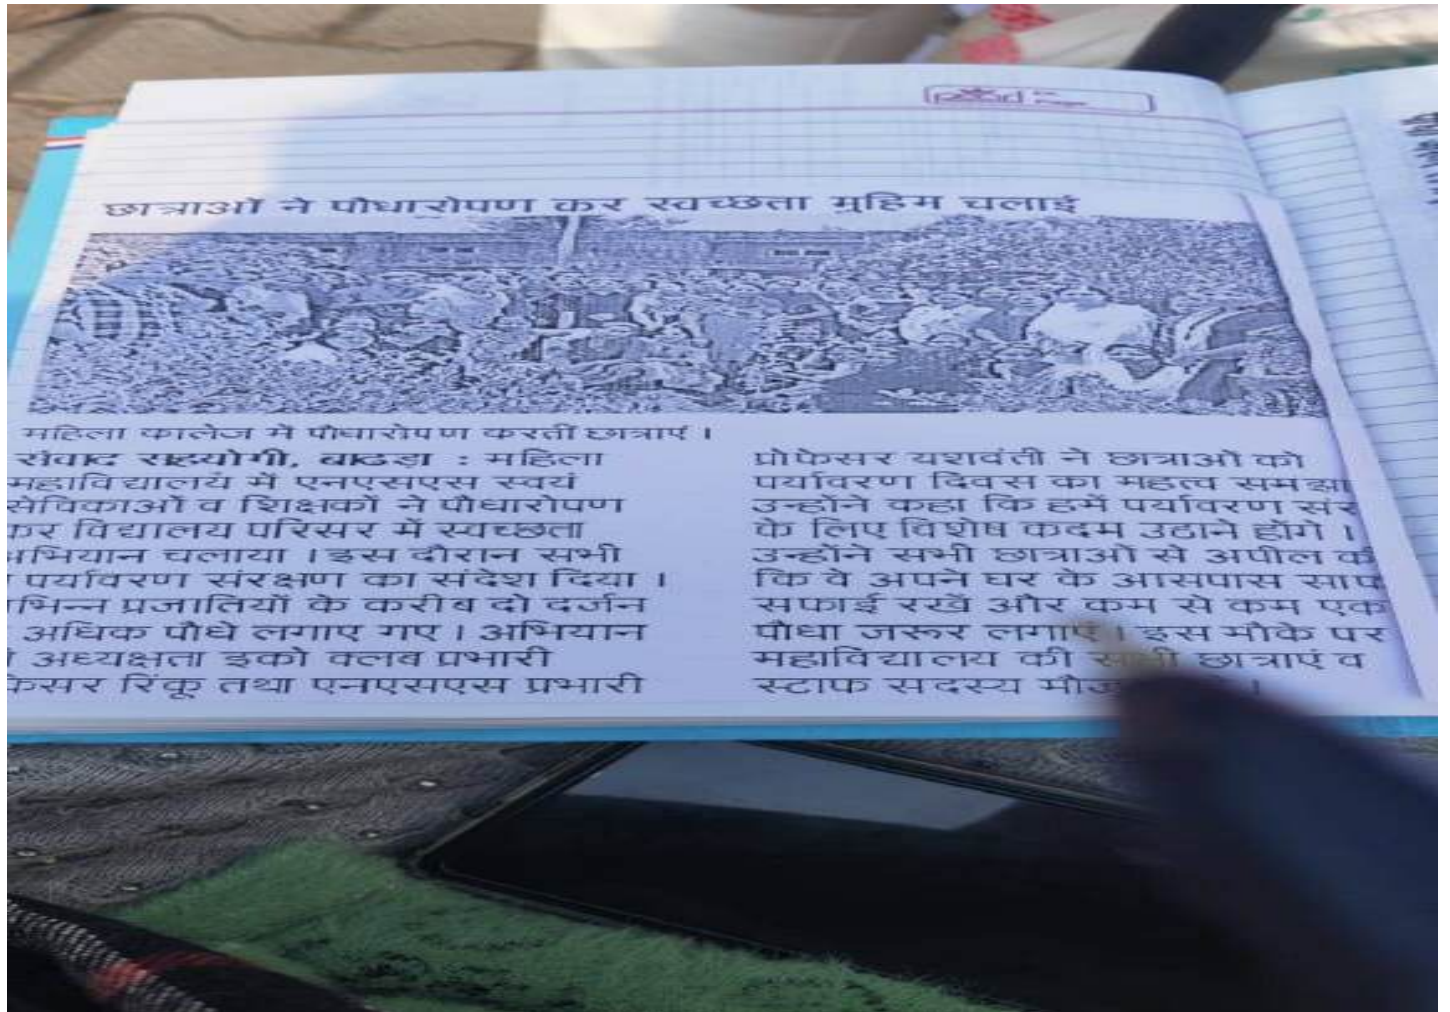 छात्राओं ने पौधारोपण कर स्वच्छता मुहिम चलाई
महिला कालेज में पौधारोपण करतीं छात्राएं ।
संवाद सहयोगी, बाढड़ा : महिला
महाविद्यालय में एनएसएस स्वयं
सेविकाओं व शिक्षकों ने पौधारोपण
कर विद्यालय परिसर में स्वच्छता
अभियान चलाया । इस दौरान सभी
पर्यावरण संरक्षण का संदेश दिया ।
प्रजातियों के करीब दो दर्जन
अधिक पौधे लगाए गए । अभियान
अध्यक्षता इको क्लब प्रभारी
रिंकू तथा एनएसएस प्रभारी
प्रोफेसर यशवंती ने छात्राओं को
पर्यावरण दिवस का महत्व समझा
उन्होंने कहा कि हमें पर्यावरण सर
के लिए विशेष कदम उठाने होंगे ।
उन्होंने सभी छात्राओं से अपील की
कि वे अपने घर के आसपास साफ
सफाई रखें और कम से कम एक
पौधा जरूर लगाएं । इस मौके पर
महाविद्यालय की छात्राएं व
स्टाफ सदस्य